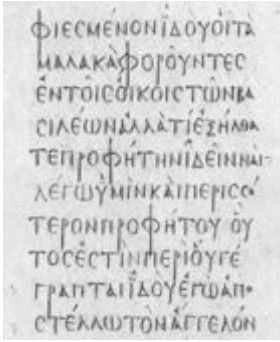 ΦΙΕCΜΕΝΟΝΙΔΟΥΟΙΤΑ
ΜΑΛΑΚΑΦΟΡΟΥΝΤΕC
ΕΝΤΟΙCΟΙΚΟΙCΤΩΝΒΑ
CΙΛΕΩΝΑΛΛΑΤΙΕΞΗΛΘΑ
ΤΕΠΡΟΦΗΤΗΝΙΔΕΙΝΝΑΙ
ΛΕΓΩΥΜΙΝΚΑΙΠΕΡΙCCΟ
ΤΕΡΟΝΠΡΟΦΗΤΟΥ ΟΥ
ΤΟCΕCΤΙΝΠΕΡΙΟΥΓΕ
ΓΡΑΠΤΑΙΙΔΟΥΕΓΩΑΠΟ
CΤΕΛΛΩΤΟΝΑΓΓΕΛΟΝ